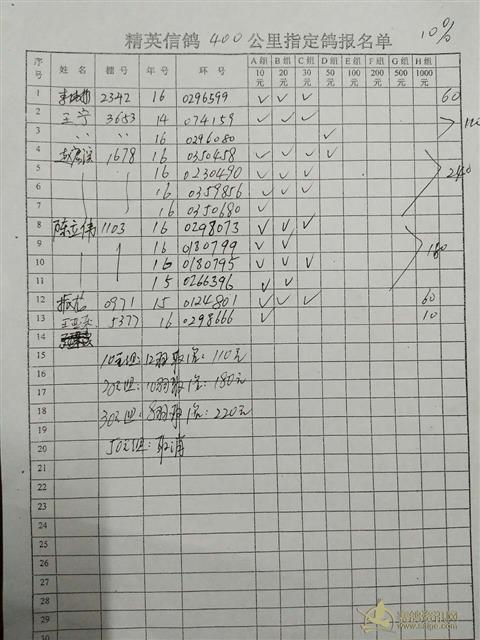 精英信鸽 400 公里指定鸽报名单 10%
序号 姓名 棚号 年号 环号 A组10元 B组20元 C组30元 D组50元 E组100元 F组200元 G组500元 H组1000元
1 2342 16 0296599 ✓ ✓ ✓ 60
2 王宁 3653 14 074159 ✓ ✓ ✓
3 〃 〃 16 0296080 ✓
4 1678 16 0350458 ✓ ✓ ✓ ✓
5 16 0230490 ✓ ✓ ✓ 240
6 16 0359856 ✓ ✓ ✓
7 16 0350680 ✓
8 陈立伟 1103 16 0298073 ✓ ✓ ✓
9 16 0180799 ✓ ✓ 180
10 16 0180795 ✓ ✓ ✓
11 15 0266396 ✓ ✓
12 0971 15 0124801 ✓ ✓ ✓ 60
13 5377 16 0298666 ✓ 10
14
15 10元组:12羽取1名:110元
16
17 20元组:10羽取1名:180元
18 30元组:8羽取1名:220元
19
20 50元组:取消
21
22
23
24
25
26
27
28
29
30
www.saige.com